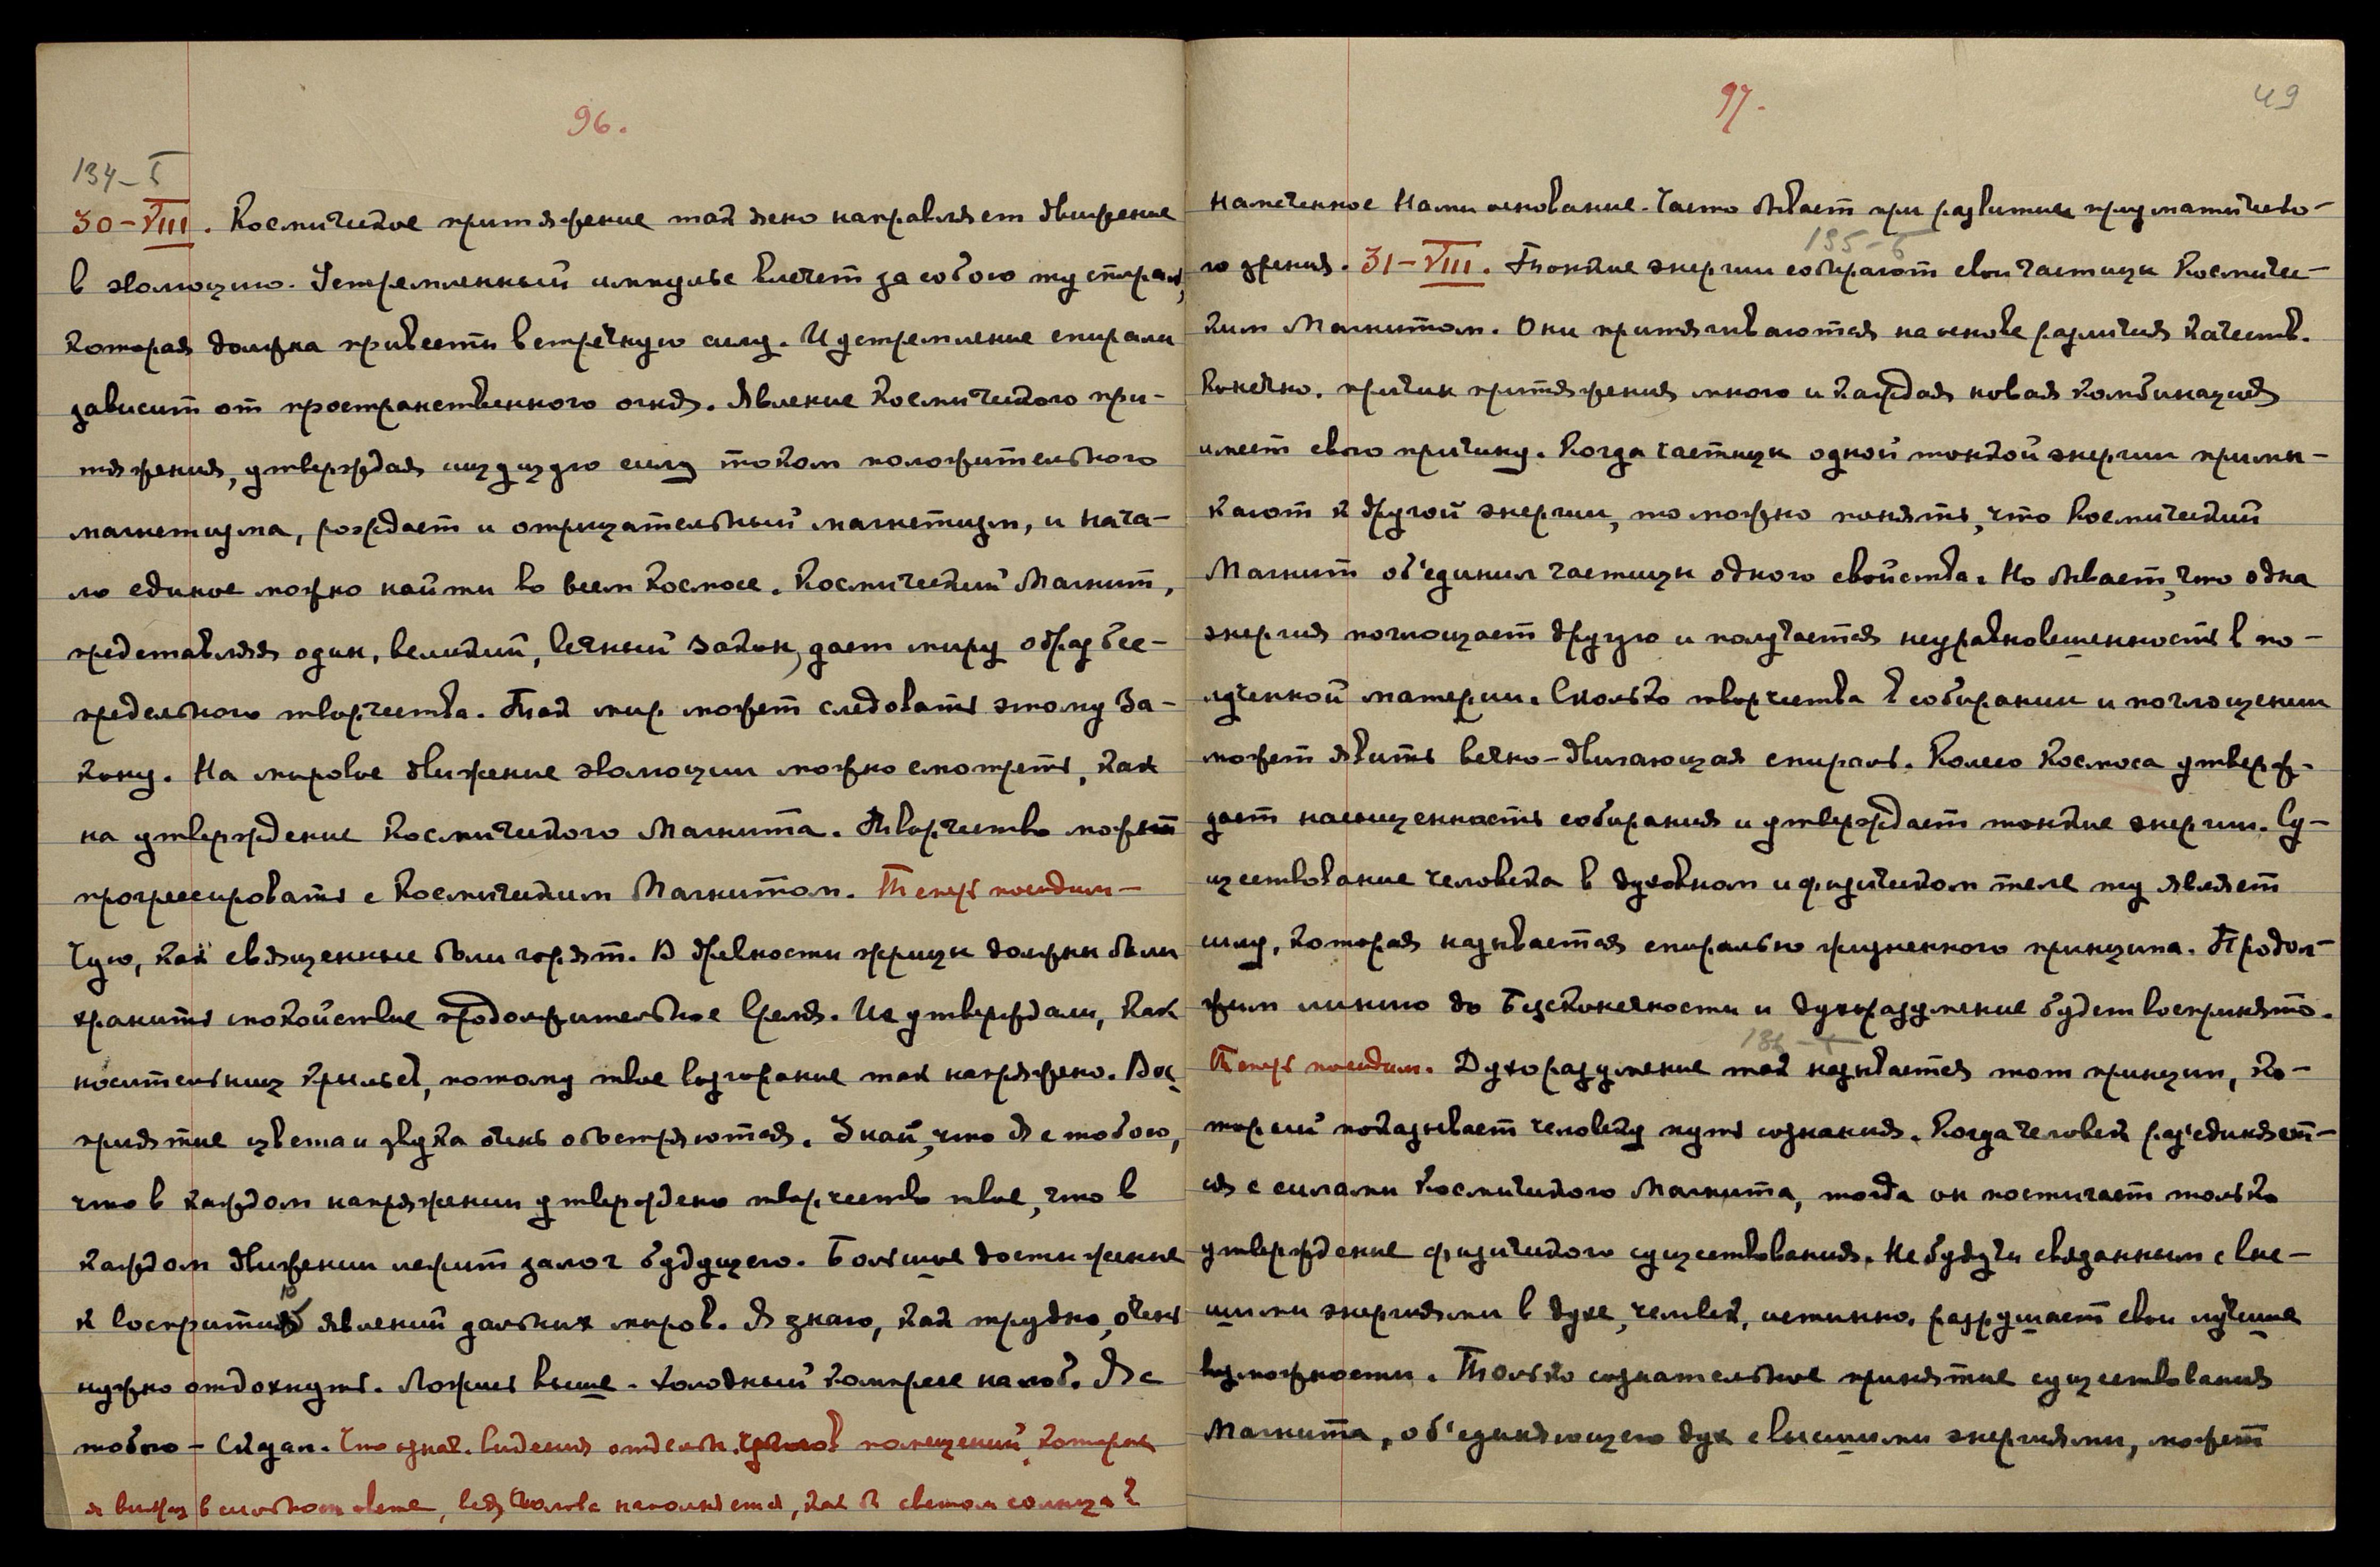 96.
134-Б
30-VIII. Космическое притяжение так ясно направляет движение
в эволюцию. Устремленный импульс влечет за собою ту спираль,
которая должна привести встречную силу. И устремление спирали
зависит от пространственного огня. Явление Космического при-
тяжения, утверждая ищущую силу током положительного
магнетизма, рождает и отрицательный магнетизм, и нача-
ло единое можно найти во всем Космосе. Космический Магнит,
представляя один, великий, вечный закон, дает миру образ бес-
предельного творчества. Так мир может следовать этому За-
кону. На мировое движение эволюции можно смотреть, как
на утверждение Космического Магнита. Творчество может
прогрессировать с Космическим Магнитом. Теперь посидим-
Чую, как священные боли горят. В древности жрицы должны были
хранить спокойствие продолжительное время. Их утверждали, как
носительниц крыльев, потому твое возгорание так напряжено. Вос-
приятие цвета и звука очень обостряются. Знай, что Я с тобою,
что в каждом напряжении утверждено творчество твое, что в
каждом движении лежит залог будущего. Большое достижение
к восприятию явлений дальних миров. Я знаю, как трудно, очень
нужно отдохнуть. Ложись выше. холодный компресс на лоб. Я с
тобою - Сказал. Что означ. видения отдельн. помещений, которые
я вижу в сильном свете, вся голова наполняется, как бы светом солнца?
97.
49
намеченное Нами основание. Часто бывает при развитии призматическо-
го зрения. 31-VIII. Тонкие энергии собирают свои частицы Космичес-
135-Б
ким Магнитом. Они притягиваются на основе различия качеств.
Конечно, причин притяжения много и каждая новая комбинация
имеет свою причину. Когда частицы одной тонкой энергии примы-
кают к другой энергии, то можно понять, что Космический
Магнит об'единил частицы одного свойства. Но бывает, что одна
энергия поглощает другую и получается неуравновешенность в по-
лученной материи. Сколько творчества в собирании и поглощении
может явить вечно-двигающая спираль. Колесо Космоса утверж-
дает насыщенность собирания и утверждает тонкие энергии. Су-
ществование человека в духовном и физическом теле ту являет
силу, которая называется спиралью жизненного принципа. Продол-
жим линию до Бесконечности и духоразумение будет воспринято.
136-Б
Теперь посидим. Духоразумение так называется тот принцип, ко-
торый показывает человеку путь сознания. Когда человек раз'единяет-
ся с силами Космического Магнита, тогда он постигает только
утверждение физического существования. Не будучи связанным с выс-
шими энергиями в духе, человек, истинно, разрушает свои лучшие
возможности. Только сознательное принятие существования
Магнита, об'единяющего дух с высшими энергиями, может